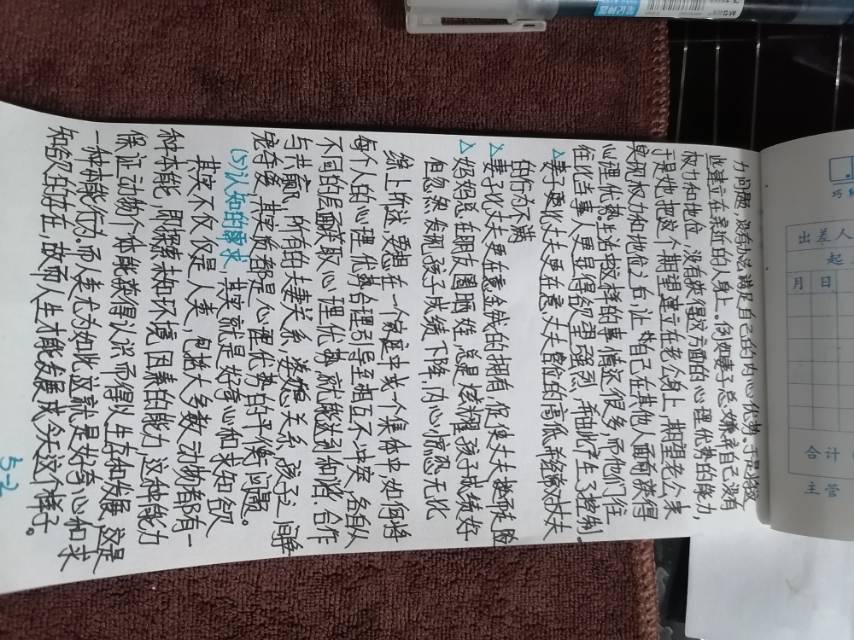 力问题，没有办法满足自己的内心优势。于是转移
也建立在亲近的人身上。例如妻子总嫌弃自己没有
权力和地位，没有获得这方面的心理优势的能力，
于是她把这个期望建立在老公身上，期望老公来
实现权力和地位之后，让自己在其他人面前获得
心理优势。生活中这样的事情还很多，而他们往
往比当事人更显得欲望强烈，稍由此产生了控制。
△妻子要比丈夫更在意丈夫官位的高低，并经常对丈夫
的行为不满
△妻子比丈夫更在意金钱的拥有，促使丈夫铤而走险
△妈妈总在朋友圈晒娃，总是炫耀孩子成绩好
但忽然发现孩子成绩下降，内心惊恐无比
综上所述，要想在一个家庭中或一个集体中，如何将
每个人的心理优势合理引导至相互不冲突，各自从
不同的层面获取心理优势，就能达到和谐、合作
与共赢，所有的夫妻关系、婆媳关系、孩子之间
宠夺爱，其实质都是心理优势的平衡问题。
(5)认知的需求，其实就是好奇心和求知欲
其实不仅仅是人类，包括大多数动物都有一
种本能，即探索未知环境因素的能力，这种能力
保证动物个体能获得认识而得以生存和发展，这是
一种本能行为。而人类尤为如此，这就是好奇心和求
知欲的存在，故而人生才能发展成今天这个样子。
5-2
出差人
起
月 日
合计
主管